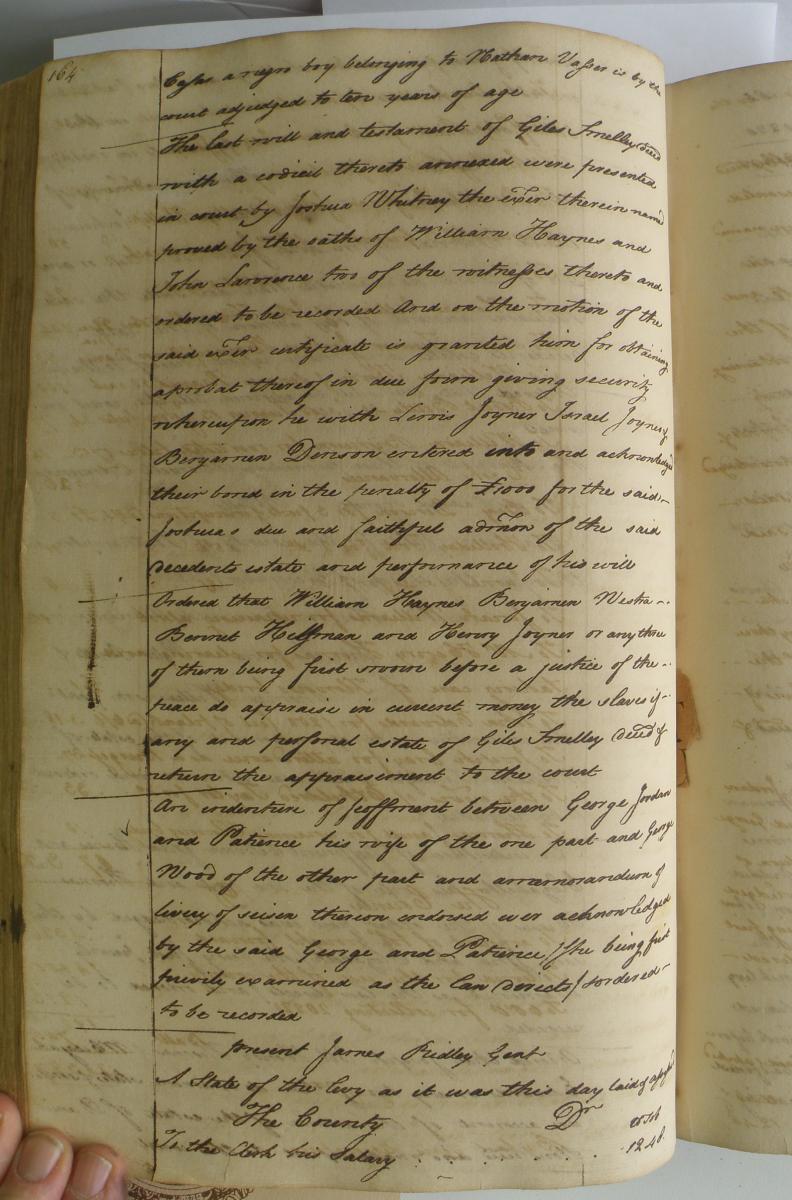 164
a negro boy belonging to Nathan Vasser is by the
court adjudged to ten years of age
The last will and testament of Giles Smelley decd
with a codicil thereto annexed were presented
in court by Joshua Whitney the exer therein named
proved by the oaths of William Haynes and
John Lawrence two of the witnesses thereto and
ordered to be recorded And on the motion of the
said exer certificate is granted him for obtaining
a probat thereof in due form giving security
whereupon he with Lewis Joyner Israel Joyner &
Benjamin Denson entered into and acknowledged
their bond in the penalty of £1000 for the said
Joshua's due and faithful admon of the said
decedents estate and performance of his will
Ordered that William Haynes Benjamin Westra
Bennet and Henry Joyner or any three
of them being first sworn before a justice of the
peace do appraise in current money the slaves if
any and personal estate of Giles Smelley decd &
return the appraisement to the court
An indenture of feoffment between George Jordan
and Patience his wife of the one part and George
Wood of the other part and a memorandum of
livery of seisen thereon endorsed wer acknowledged
by the said George and Patience / she being first
privily examined as the Law directs / & ordered
to be recorded
present James Ridley Gent
A State of the levy as it was this day laid &
The County Dr
To the Clerk his Salary 1248